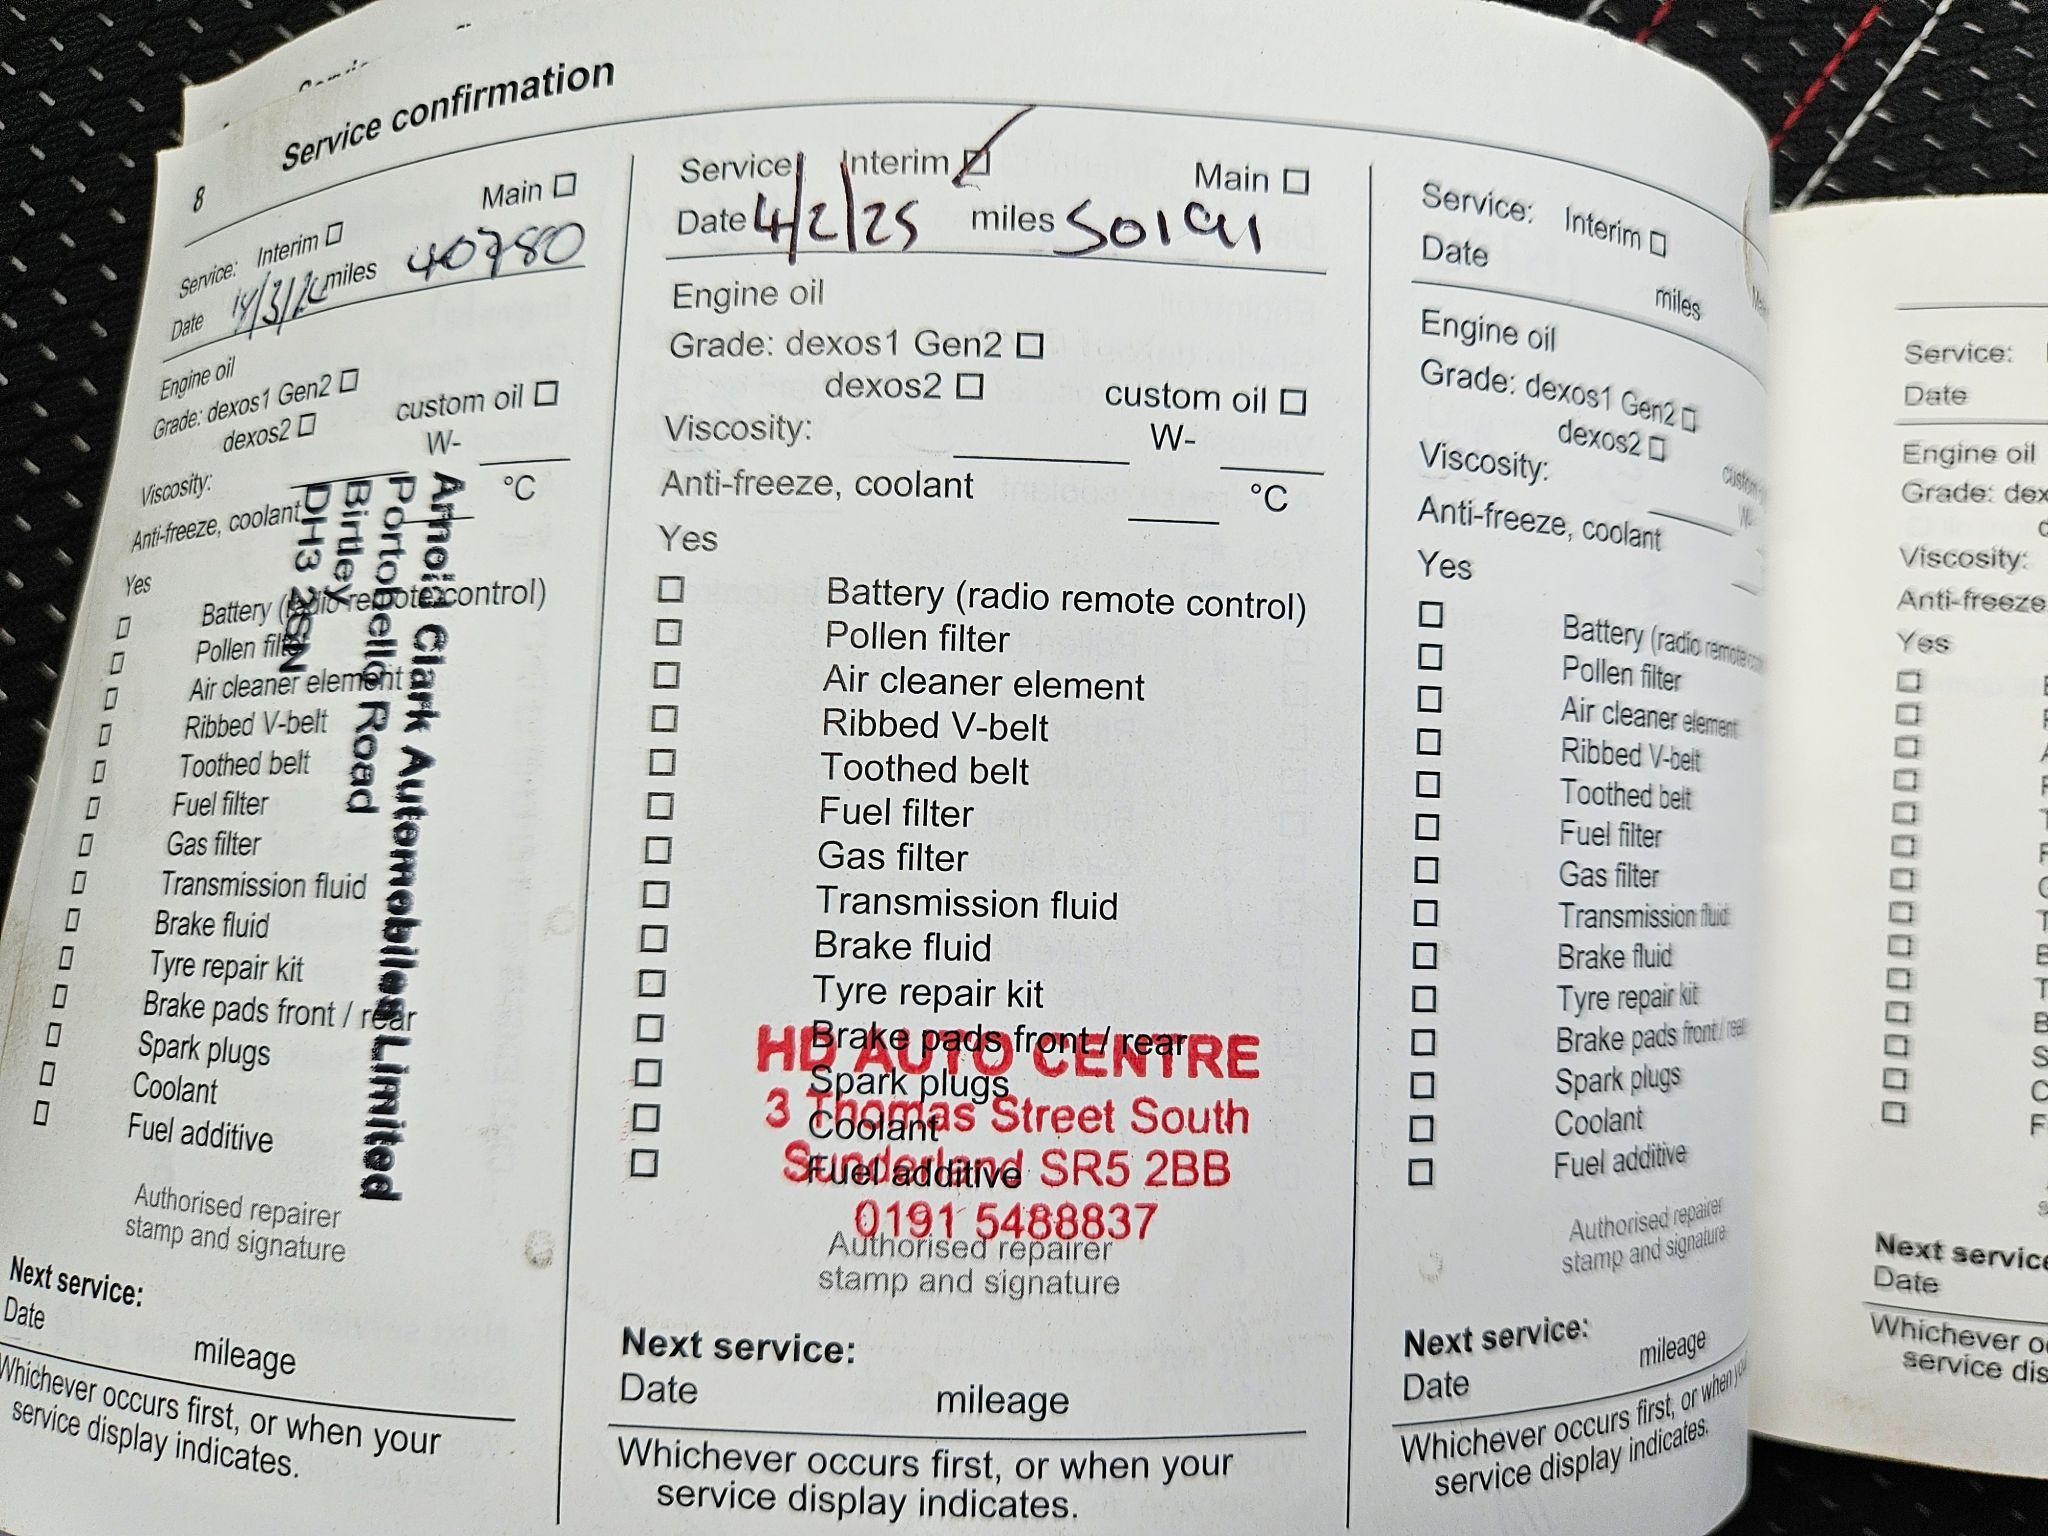 Service confirmation
8
Service: Interim Main
Date 14/3/24 miles 40780
Engine oil
Grade: dexos1 Gen2
dexos2 custom oil
Viscosity: W-
Anti-freeze, coolant °C
Yes
Battery (radio remote control)
Pollen filter
Air cleaner element
Ribbed V-belt
Toothed belt
Fuel filter
Gas filter
Transmission fluid
Brake fluid
Tyre repair kit
Brake pads front / rear
Spark plugs
Coolant
Fuel additive
Arnold Clark Automobiles Limited
Portobello Road
Birtley
DH3 2SN
Authorised repairer
stamp and signature
Next service:
Date mileage
Whichever occurs first, or when your
service display indicates.
Service: Interim Main
Date 4/2/25 miles 50191
Engine oil
Grade: dexos1 Gen2
dexos2 custom oil
Viscosity: W-
Anti-freeze, coolant °C
Yes
Battery (radio remote control)
Pollen filter
Air cleaner element
Ribbed V-belt
Toothed belt
Fuel filter
Gas filter
Transmission fluid
Brake fluid
Tyre repair kit
Brake pads front / rear
Spark plugs
Coolant
Fuel additive
HD AUTO CENTRE
3 Thomas Street South
Sunderland SR5 2BB
0191 5488837
Authorised repairer
stamp and signature
Next service:
Date mileage
Whichever occurs first, or when your
service display indicates.
Service: Interim
Date miles
Engine oil
Grade: dexos1 Gen2
dexos2 custom
Viscosity: W-
Anti-freeze, coolant
Yes
Battery (radio remote
Pollen filter
Air cleaner element
Ribbed V-belt
Toothed belt
Fuel filter
Gas filter
Transmission fluid
Brake fluid
Tyre repair kit
Brake pads front / rear
Spark plugs
Coolant
Fuel additive
Authorised repairer
stamp and signature
Next service:
Date mileage
Whichever occurs first, or when you
service display indicates.
Service:
Date
Engine oil
Grade: dex
Viscosity:
Anti-freeze
Yes
Next service
Date
Whichever o
service dis